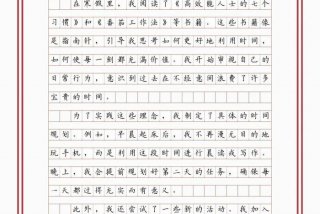 在寒假里，我阅读了《高效能人士的七个
习惯》和《番茄工作法》等书籍。这些书籍像
是指南针，引导我思考如何更好地利用时间，
如何使每一刻都充满价值。我开始审视自己的
日常行为，意识到过去在不经意间浪费了许多
宝贵的时间。
为了实践这些理念，我制定了具体的时间
规划。例如，早晨起床后，我不再漫无目的地
玩手机，而是利用这段时间进行晨读或写作。
晚上，我会提前规划好第二天的任务，确保每
一天都过得充实而有意义。
此外，我还尝试了一些新的活动。我加入